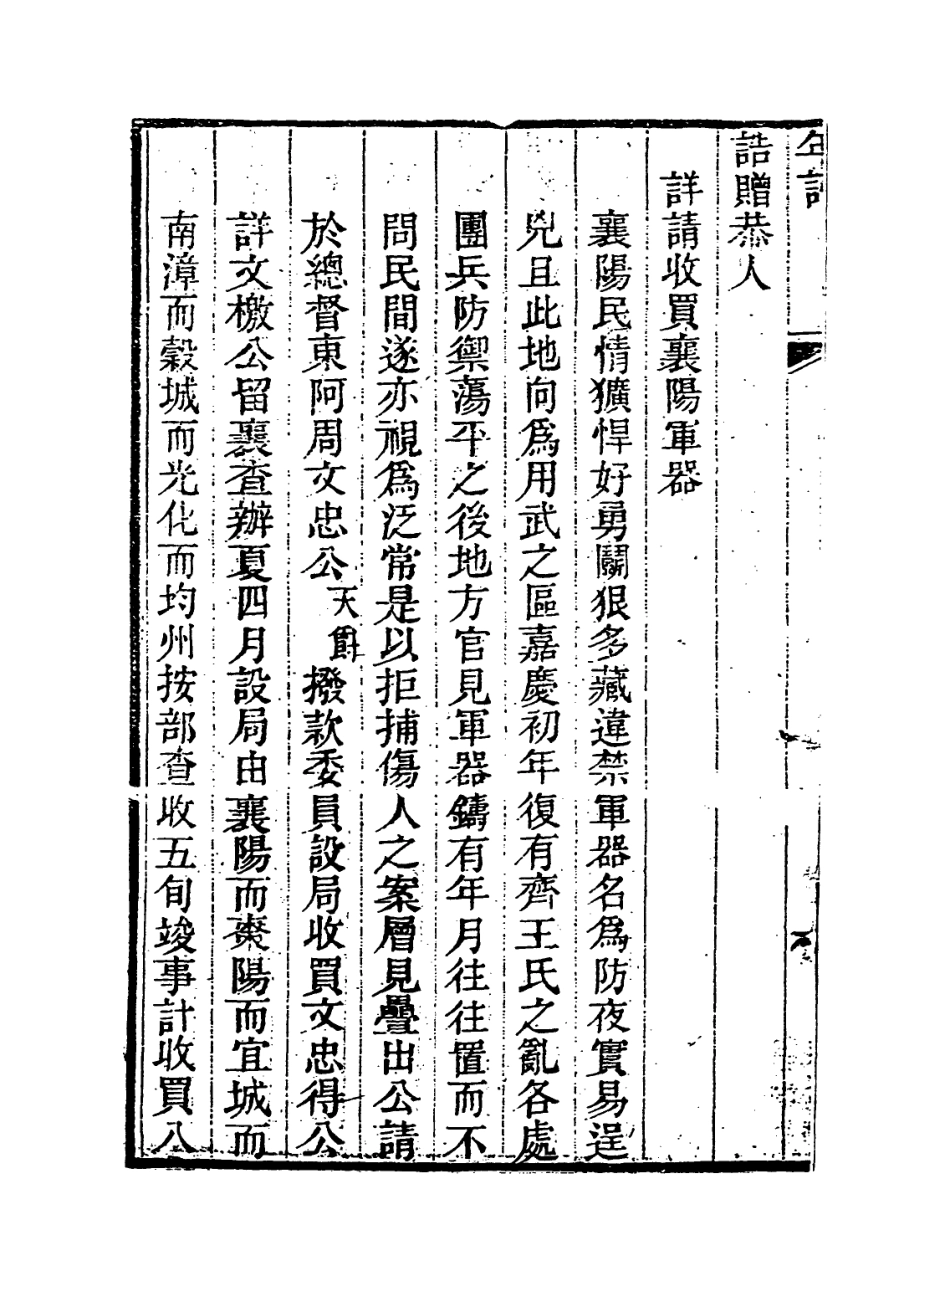 年譜
誥贈恭人
詳請收買襄陽軍器
襄陽民情獷悍好勇鬭狠多藏違禁軍器名爲防夜實易逞
兇且此地向爲用武之區嘉慶初年復有齊王氏之亂各處
團兵防禦蕩平之後地方官見軍器鑄有年月往往置而不
問民間遂亦視爲泛常是以拒捕傷人之案層見疊出公請
於總督東阿周文忠公天爵撥款委員設局收買文忠得公
詳文檄公留襄查辦夏四月設局由襄陽而棗陽而宜城而
南漳而穀城而光化而均州按部查收五旬竣事計收買八